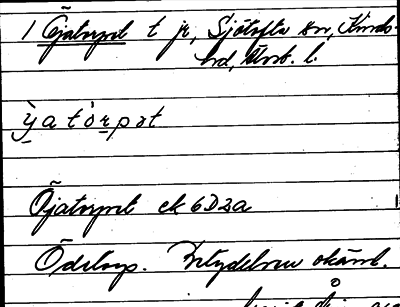 1 Öjatorpet t jr, Sjötofta sn, Kinds
hd, Älvsb. l.
ỳ̱ a t ò ṟ p ə t
Öjatorpet ek 6D2a
Ödetorp. Betydelsen okänd.